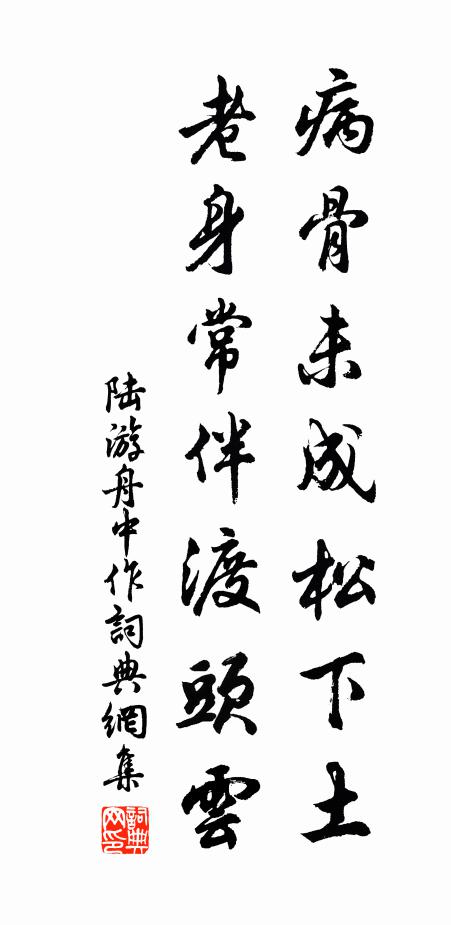 病骨未成松下土
老身常伴渡頭雲
陆游舟中作詞典網集
詞典
网印